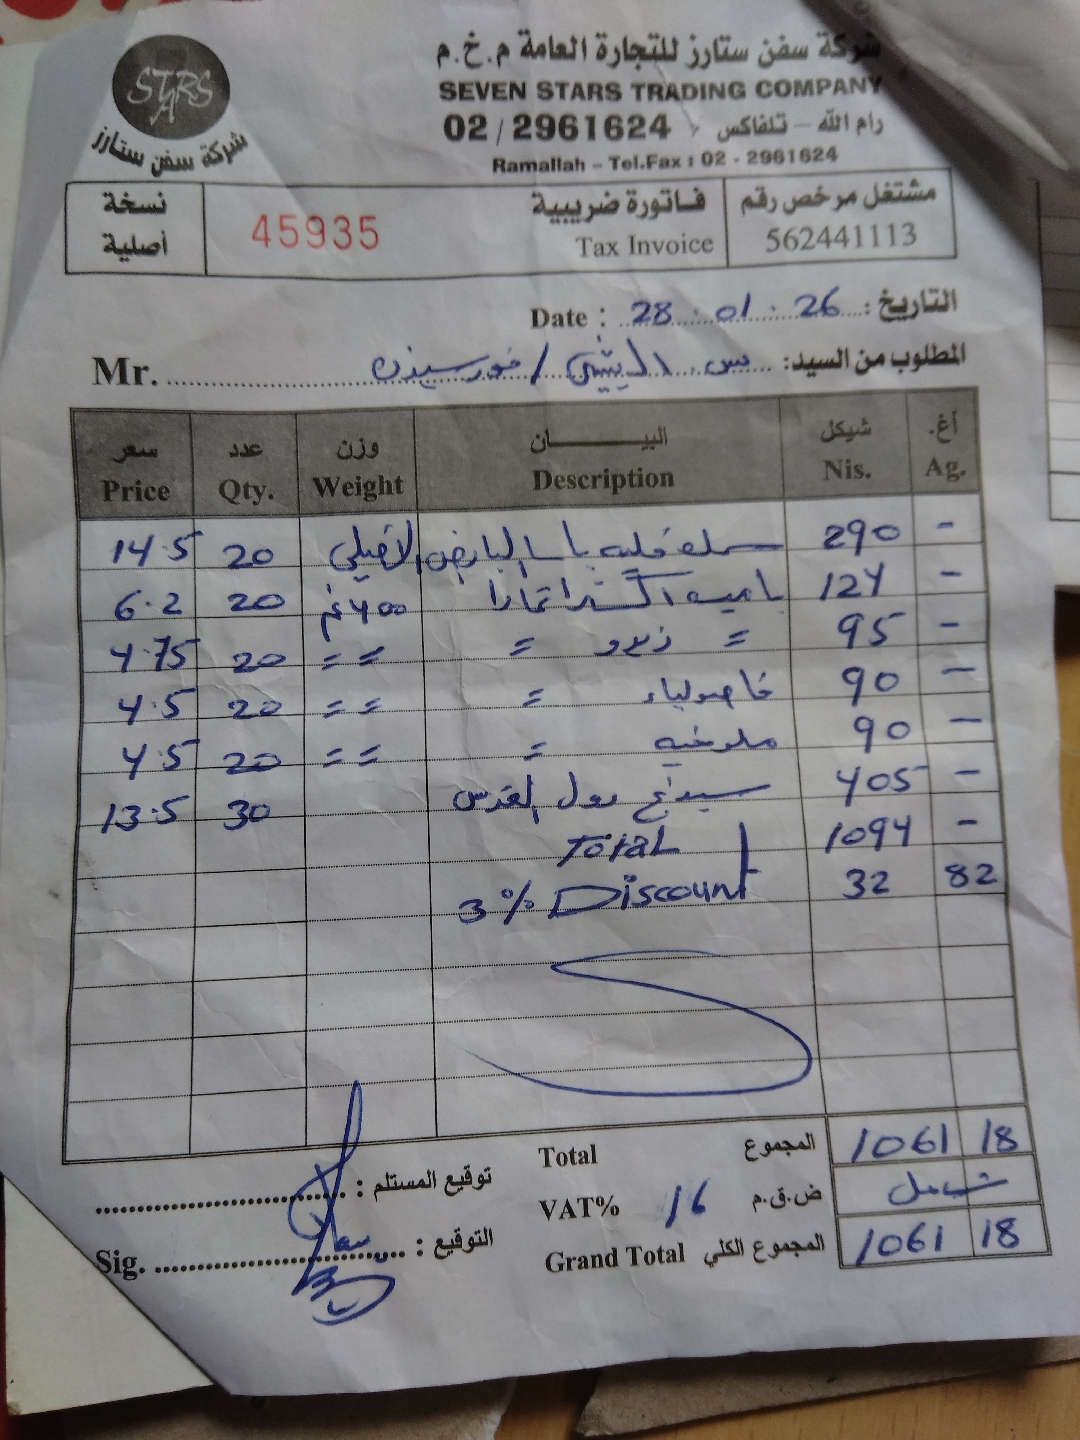 شركة سفن ستارز للتجارة العامة م.خ.م
SEVEN STARS TRADING COMPANY
رام الله - تلفاكس 02 / 2961624
Ramallah - Tel.Fax : 02 - 2961624
STARS
شركة سفن ستارز
مشتغل مرخص رقم 562441113
فاتورة ضريبية Tax Invoice
45935
نسخة أصلية
التاريخ : Date : 28 . 01 . 26
المطلوب من السيد: Mr. / فورسيزن
سعر Price عدد Qty. وزن Weight البيــــان Description شيكل Nis. أغ. Ag.
14.5 20 290 -
6.2 20 400 غم باميه اكسترا 124 -
4.75 20 = = = زيرو = 95 -
4.5 20 = = فاصولياء = 90 -
4.5 20 = = ملوخيه = 90 -
13.5 30 رول القدس 405 -
Total 1094 -
3% Discount 32 82
Total المجموع 1061 18
VAT% 16 ض.ق.م شامل
Grand Total المجموع الكلي 1061 18
توقيع المستلم :
Sig. التوقيع :